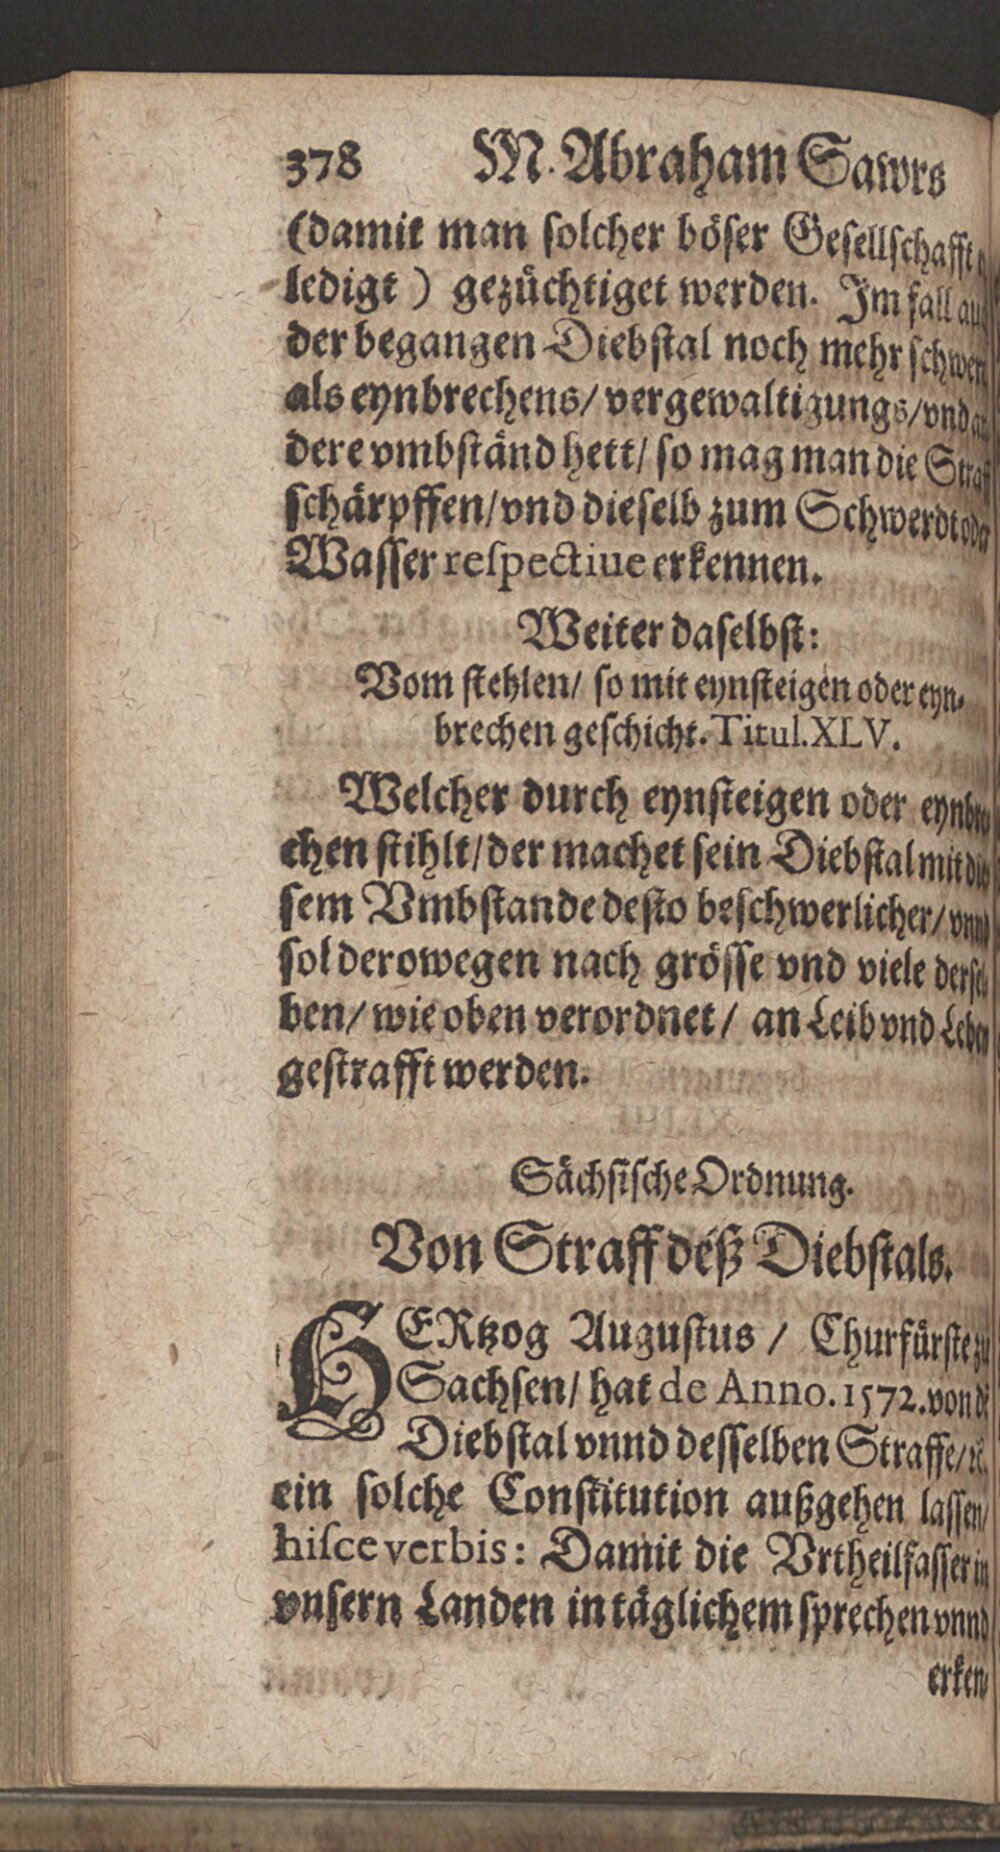 378 M. Abraham Sawrs
(damit man solcher böser Gesellschafft
ledigt) gezüchtiget werden. Im fall
der begangen Diebstal noch mehr
als eynbrechens/ vergewaltigungs/ vnd
dere vmbständ hett/ so mag man die
schärpffen/ vnd dieselb zum Schwerdt oder
Wasser respectiue erkennen.
Weiter daselbst:
Vom stehlen/ so mit eynsteigen oder eyn-
brechen geschicht. Titul. XLV.
Welcher durch eynsteigen oder
chen stihlt/ der machet sein Diebstal mit
sem Vmbstande desto beschwerlicher/ vnnd
sol derowegen nach grösse vnd viele
ben/ wie oben verordnet/ an Leib vnd Leben
gestrafft werden.
Sächsische Ordnung.
Von Straff deß Diebstals.
HERtzog Augustus / Churfürste zu
Sachsen/ hat de Anno. 1572. von
Diebstal vnnd desselben Straffe/ ꝛc.
ein solche Constitution außgehen lassen/
hisce verbis: Damit die Vrtheilfasser in
vnsern Landen in täglichem sprechen vnnd
erken-